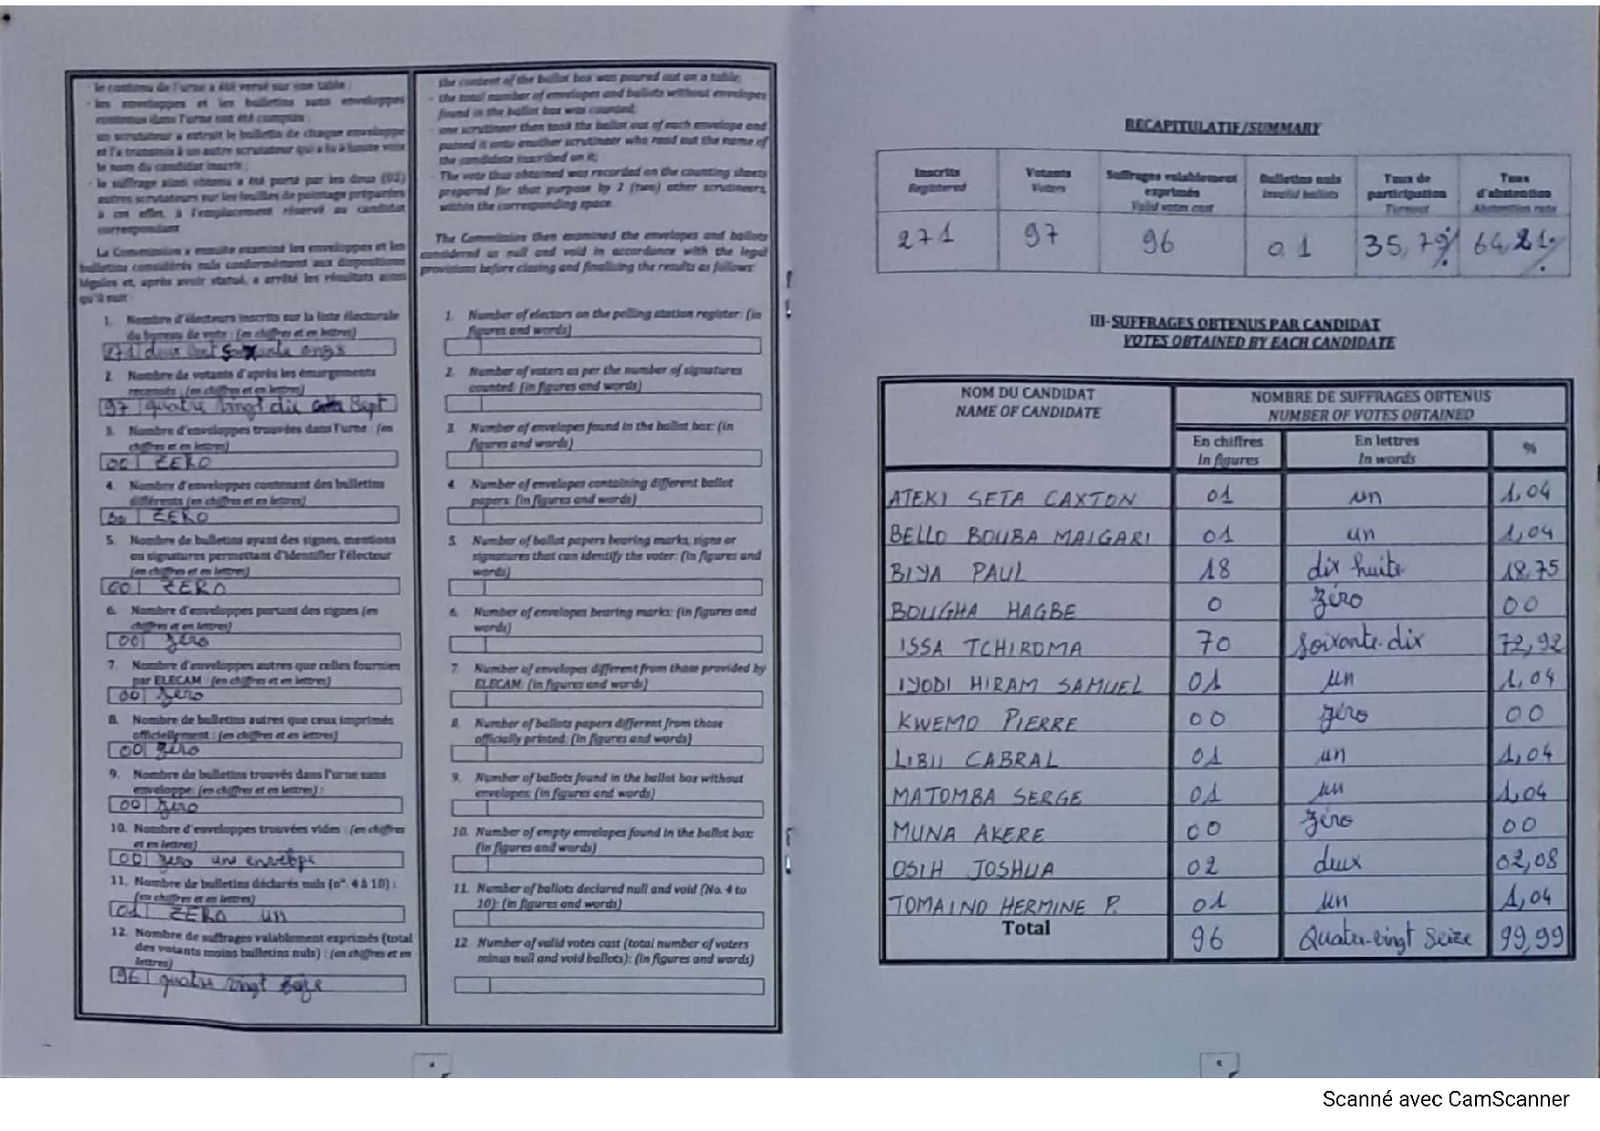 - le contenu de l'urne a été versé sur une table ;
- les enveloppes et les bulletins sans enveloppes
contenus dans l'urne ont été comptés ;
- un scrutateur a extrait le bulletin de chaque enveloppe
et l'a transmis à un autre scrutateur qui a lu à haute voix
le nom du candidat inscrit ;
- le suffrage ainsi obtenu a été porté par les deux (02)
autres scrutateurs sur les feuilles de pointage préparées
à cet effet, à l'emplacement réservé au candidat
correspondant.
La Commission a ensuite examiné les enveloppes et les
bulletins considérés nuls conformément aux dispositions
légales et, après avoir statué, a arrêté les résultats ainsi
qu'il suit :
1. Nombre d'électeurs inscrits sur la liste électorale
du bureau de vote : (en chiffres et en lettres)
271 deux cent soixante onze
2. Nombre de votants d'après les émargements
recensés : (en chiffres et en lettres)
97 quatre vingt dix sept
3. Nombre d'enveloppes trouvées dans l'urne : (en
chiffres et en lettres)
00 ZERO
4. Nombre d'enveloppes contenant des bulletins
différents (en chiffres et en lettres)
00 ZERO
5. Nombre de bulletins ayant des signes, mentions
ou signatures permettant d'identifier l'électeur
(en chiffres et en lettres)
00 ZERO
6. Nombre d'enveloppes portant des signes (en
chiffres et en lettres)
00 zéro
7. Nombre d'enveloppes autres que celles fournies
par ELECAM : (en chiffres et en lettres)
00 zéro
8. Nombre de bulletins autres que ceux imprimés
officiellement : (en chiffres et en lettres)
00 zéro
9. Nombre de bulletins trouvés dans l'urne sans
enveloppe: (en chiffres et en lettres) :
00 zéro
10. Nombre d'enveloppes trouvées vides : (en chiffres
et en lettres)
00 zero une envelope
11. Nombre de bulletins déclarés nuls (n°. 4 à 10) :
(en chiffres et en lettres)
01 ZERO un
12. Nombre de suffrages valablement exprimés (total
des votants moins bulletins nuls) : (en chiffres et en
lettres)
96 quatre vingt seize
the content of the ballot box was poured out on a table;
- the total number of envelopes and ballots without envelopes
found in the ballot box was counted;
- one scrutineer then took the ballot out of each envelope and
passed it onto another scrutineer who read out the name of
the candidate inscribed on it;
- The vote thus obtained was recorded on the counting sheets
prepared for that purpose by 2 (two) other scrutineers,
within the corresponding space.
The Commission then examined the envelopes and ballots
considered as null and void in accordance with the legal
provisions before closing and finalising the results as follows:
1. Number of electors on the polling station register: (in
figures and words)
2. Number of voters as per the number of signatures
counted: (in figures and words)
3. Number of envelopes found in the ballot box: (in
figures and words)
4. Number of envelopes containing different ballot
papers: (in figures and words)
5. Number of ballot papers bearing marks, signs or
signatures that can identify the voter: (in figures and
words)
6. Number of envelopes bearing marks: (in figures and
words)
7. Number of envelopes different from those provided by
ELECAM: (in figures and words)
8. Number of ballots papers different from those
officially printed: (in figures and words)
9. Number of ballots found in the ballot box without
envelopes: (in figures and words)
10. Number of empty envelopes found in the ballot box:
(in figures and words)
11. Number of ballots declared null and void (No. 4 to
10): (in figures and words)
12. Number of valid votes cast (total number of voters
minus null and void ballots): (in figures and words)
4
RECAPITULATIF/SUMMARY
Inscrits Registered | Votants Voters | Suffrages valablement exprimés Valid votes cast | Bulletins nuls Invalid ballots | Taux de participation Turnout | Taux d'abstention Abstention rate
271 97 96 01 35,79% 64,21%
III-SUFFRAGES OBTENUS PAR CANDIDAT
VOTES OBTAINED BY EACH CANDIDATE
NOM DU CANDIDAT NOMBRE DE SUFFRAGES OBTENUS
NAME OF CANDIDATE NUMBER OF VOTES OBTAINED
En chiffres En lettres %
In figures In words
ATEKI SETA CAXTON 01 un 1,04
BELLO BOUBA MAIGARI 01 un 1,04
BIYA PAUL 18 dix huite 18,75
BOUGHA HAGBE 0 zéro 00
ISSA TCHIROMA 70 soixante-dix 72,92
IYODI HIRAM SAMUEL 01 un 1,04
KWEMO PIERRE 00 zéro 00
LIBII CABRAL 01 un 1,04
MATOMBA SERGE 01 un 1,04
MUNA AKERE 00 zéro 00
OSIH JOSHUA 02 deux 02,08
TOMAINO HERMINE P. 01 un 1,04
Total 96 Quater-vingt Seize 99,99
Scanné avec CamScanner